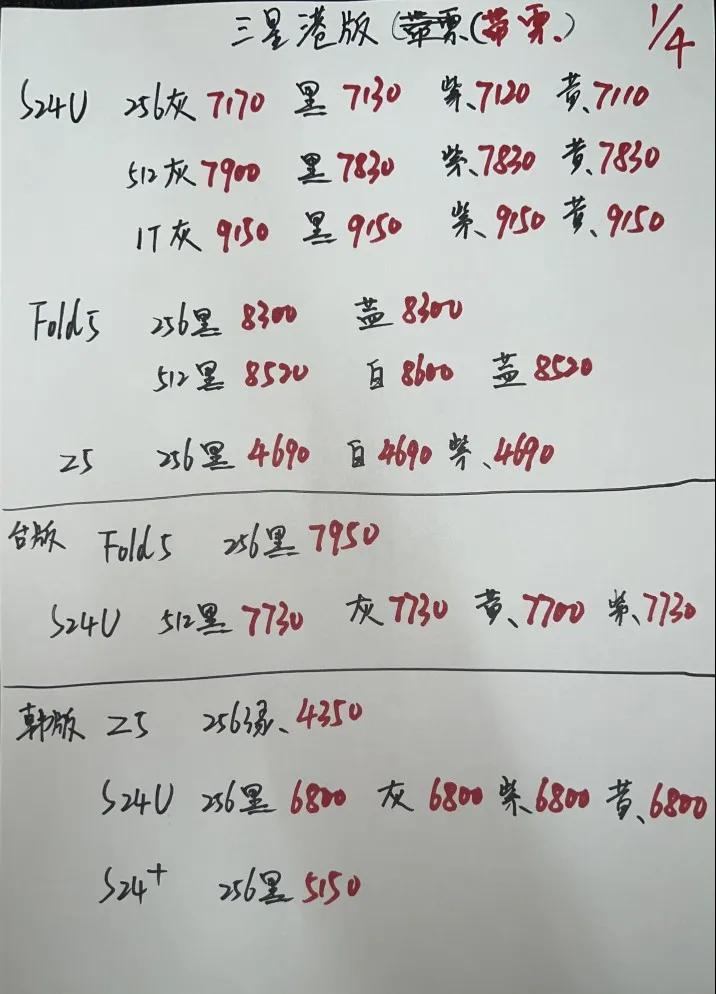 三星港版(带票(带票.) 1/4
S24U 256灰 7170 黑 7130 紫、7120 黄、7110
512灰 7900 黑 7830 紫、7830 黄、7830
1T灰 9150 黑 9150 紫、9150 黄、9150
Fold5 256黑 8300 蓝 8300
512黑 8520 白 8600 蓝 8520
Z5 256黑 4690 白 4690 紫、4690
台版 Fold5 256黑 7950
S24U 512黑 7730 灰 7730 黄、7700 紫、7730
韩版 Z5 256绿、4350
S24U 256黑 6800 灰 6800 紫、6800 黄、6800
S24+ 256黑 5150